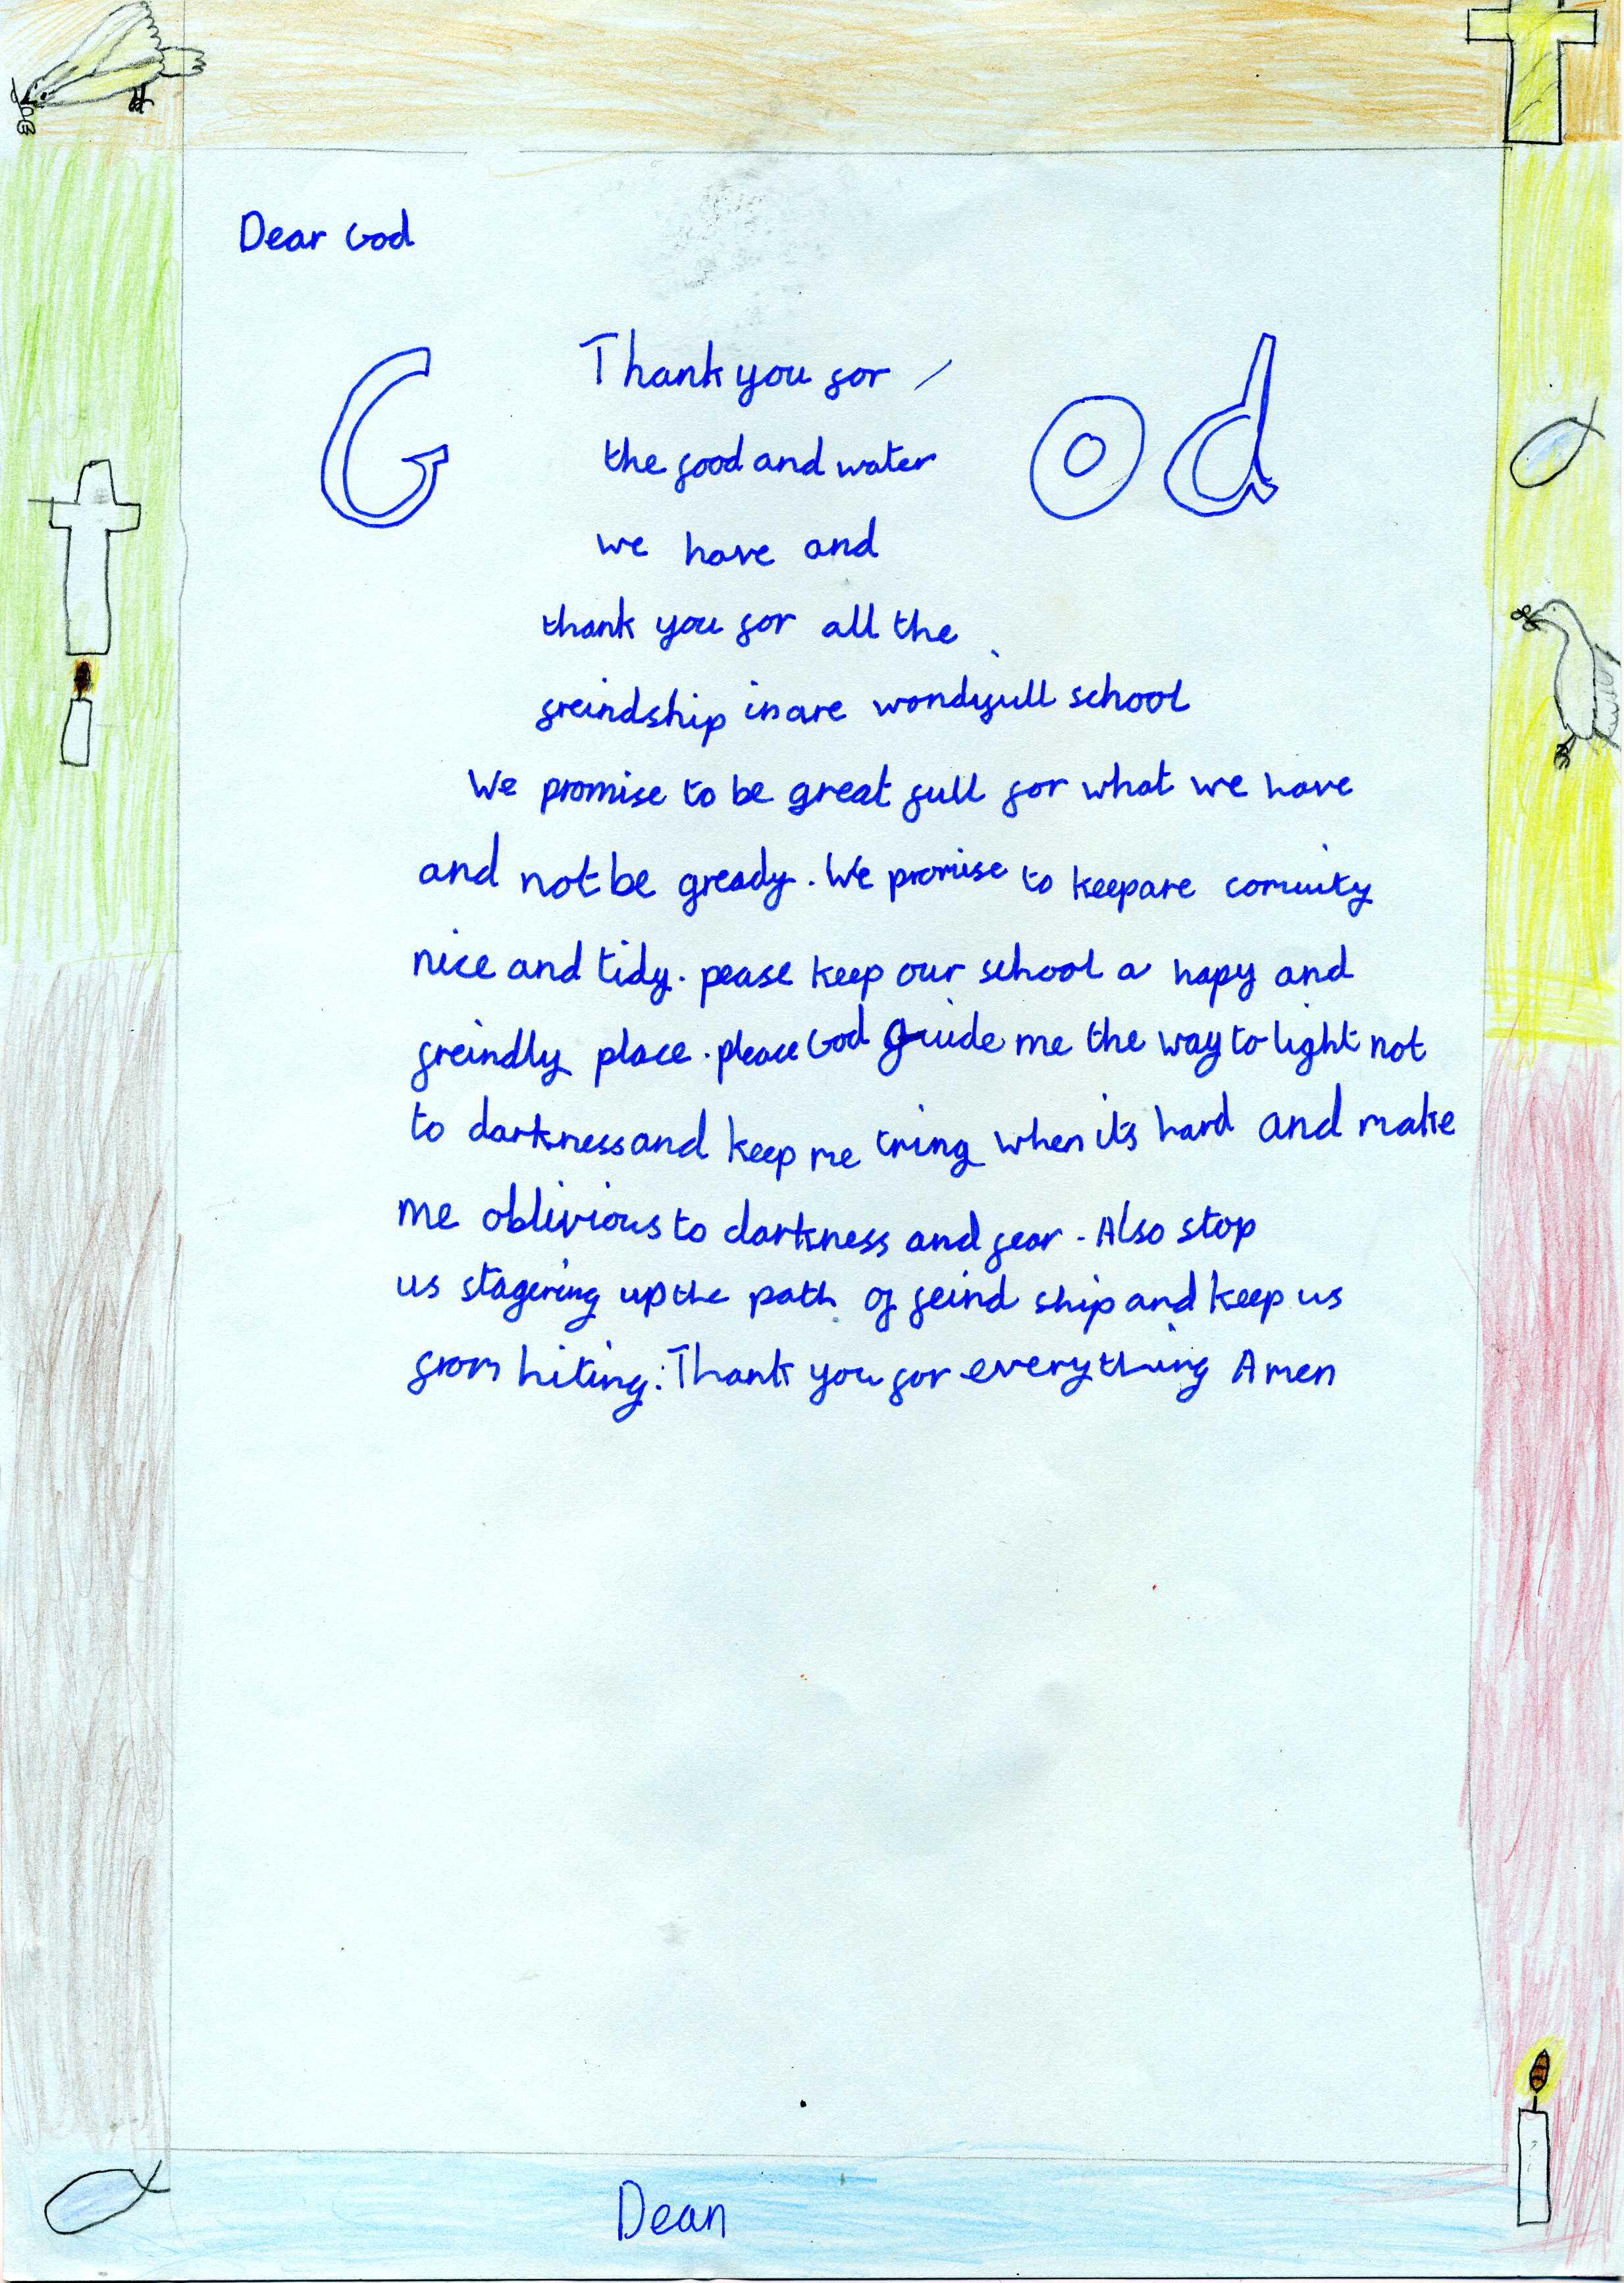 Dear God
G od
Thank you for
the food and water
we have and
thank you for all the
freindship in are wondifull school
We promise to be great full for what we have
and not be gready. We promise to keep are comuity
nice and tidy. pease keep our school a hapy and
freindly place. pleace God guide me the way to light not
to darkness and keep me tring when it's hard and make
me oblivious to darkness and fear. Also stop
us stagering up the path of feind ship and keep us
from hiting. Thank you for everything Amen
Dean